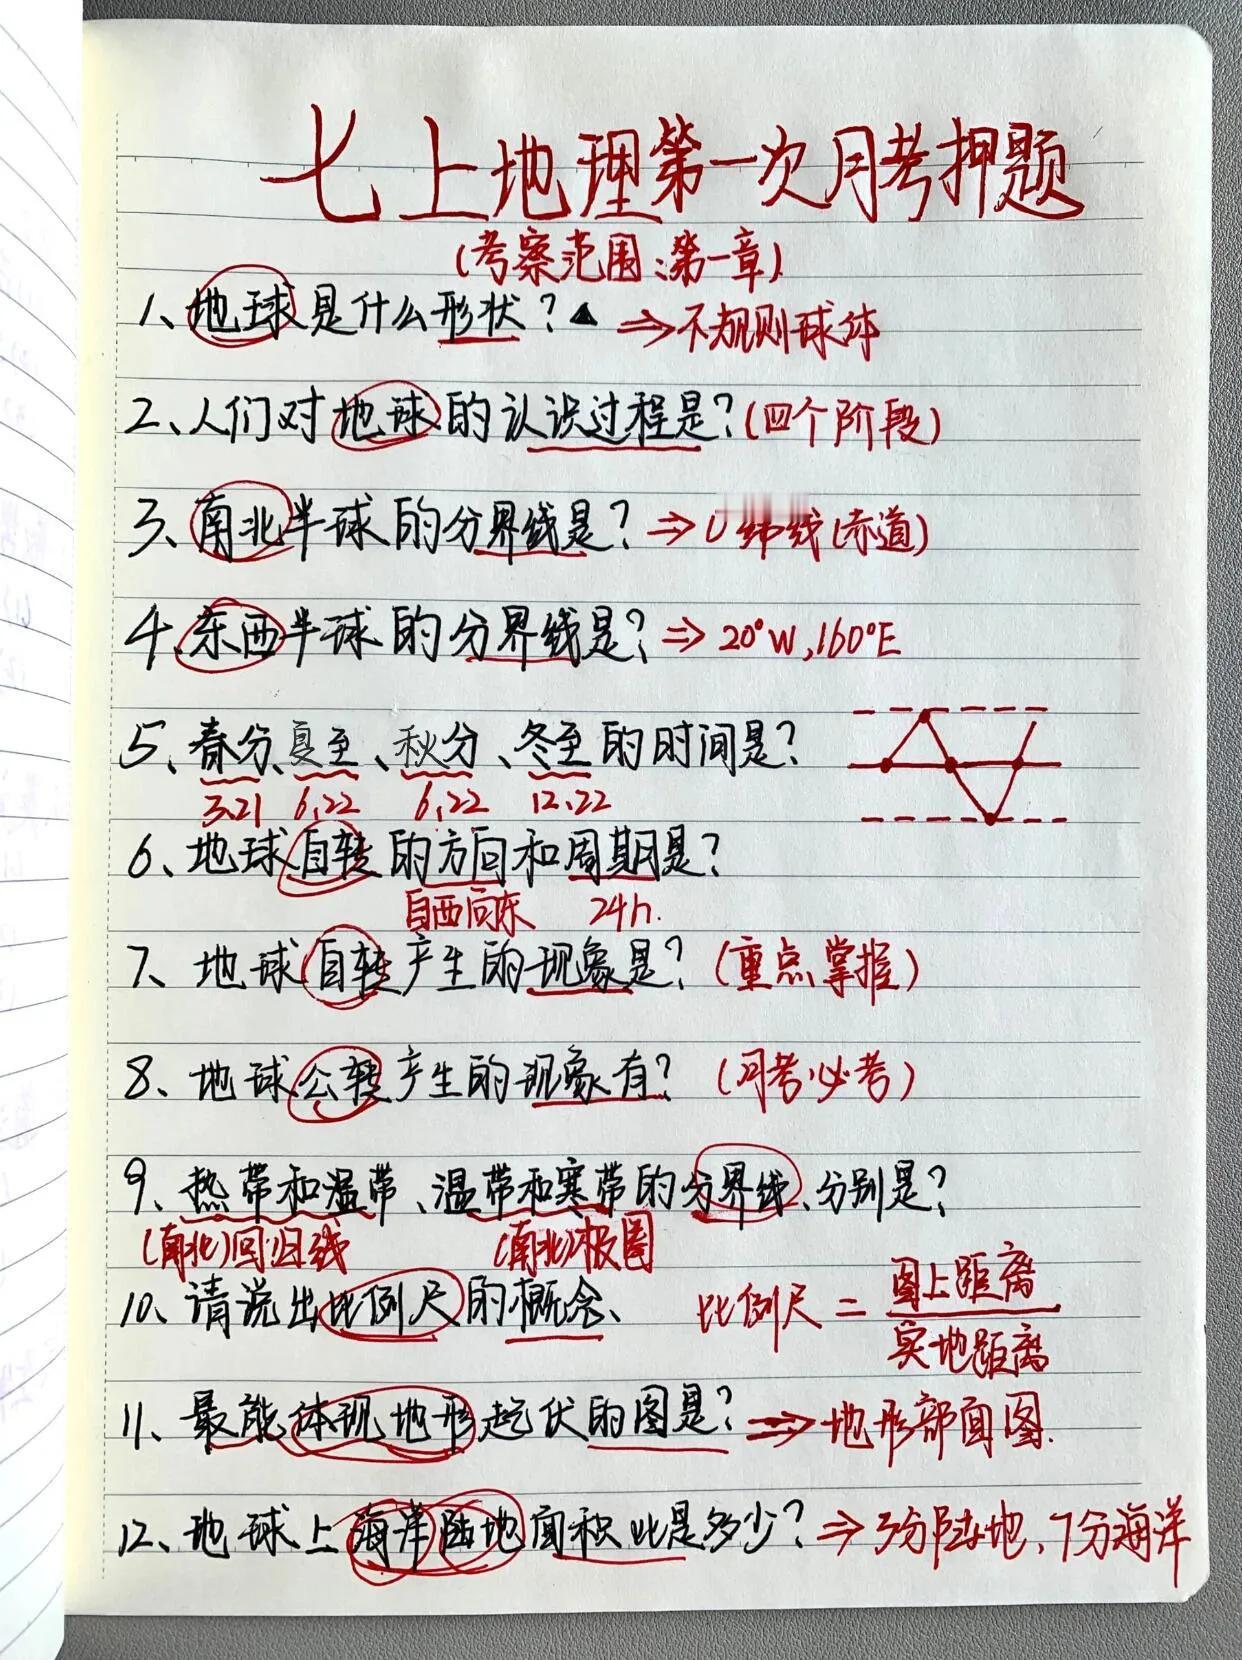 七上地理第一次月考押题
(考察范围:第一章)
1、地球是什么形状？▲ ⇒不规则球体
2、人们对地球的认识过程是？(四个阶段)
3、南北半球的分界线是？⇒ 纬线(赤道)
4、东西半球的分界线是？⇒ 20°W,160°E
5、春分、夏至、秋分、冬至的时间是？
3.21 6.22 6.22 12.22
6、地球自转的方向和周期是？
自西向东 24h.
7、地球自转产生的现象是？(重点掌握)
8、地球公转产生的现象有？(月考必考)
9、热带和温带、温带和寒带的分界线、分别是？
(南北)回归线 (南北)极圈
10、请说出比例尺的概念、 比例尺 = 图上距离
实地距离
11、最能体现地形起伏的图是？⇒地形部面图.
12、地球上海洋陆地面积比是多少？⇒3分陆地、7分海洋